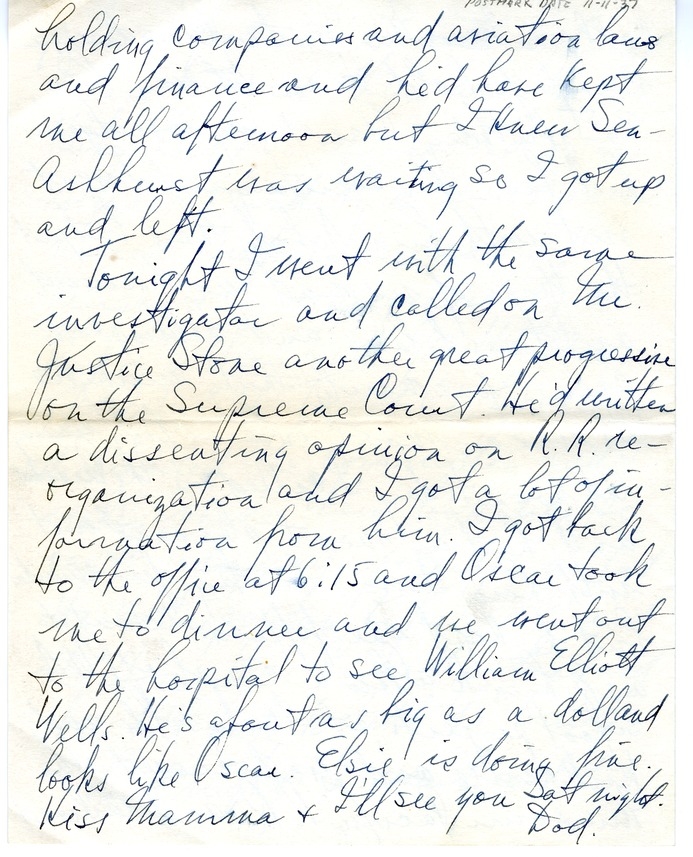 POSTMARK DATE 11-11-37
holding companies and aviation laws
and finance and he'd have kept
me all afternoon but I knew Sen-
Ashhurst was waiting so I got up
and left.
Tonight I went with the same
investigator and called on Mr.
Justice Stone another great progressive
on the Supreme Court. He'd written
a dissenting opinion on R.R. re-
organization and I got a lot of in-
formation from him. I got back
to the office at 6:15 and Oscar took
me to dinner and we went out
to the hospital to see William Elliott
Wells. He's about as big as a doll and
looks like Oscar. Elsie is doing fine.
Kiss Mamma + I'll see you Sat night.
Dad.